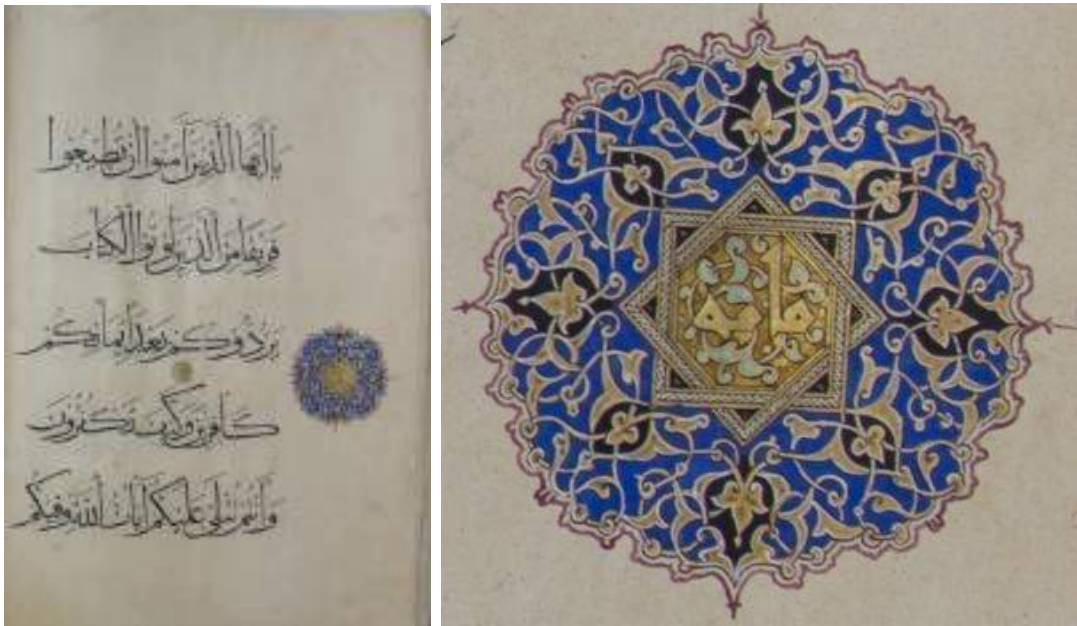 ياأيها الذين آمنوا إن تطيعوا
فريقا من الذين أوتوا الكتاب
يردوكم بعد إيمانكم
كافرين وكيف تكفرون
وأنتم تتلى عليكم آيات الله وفيكم
مايه